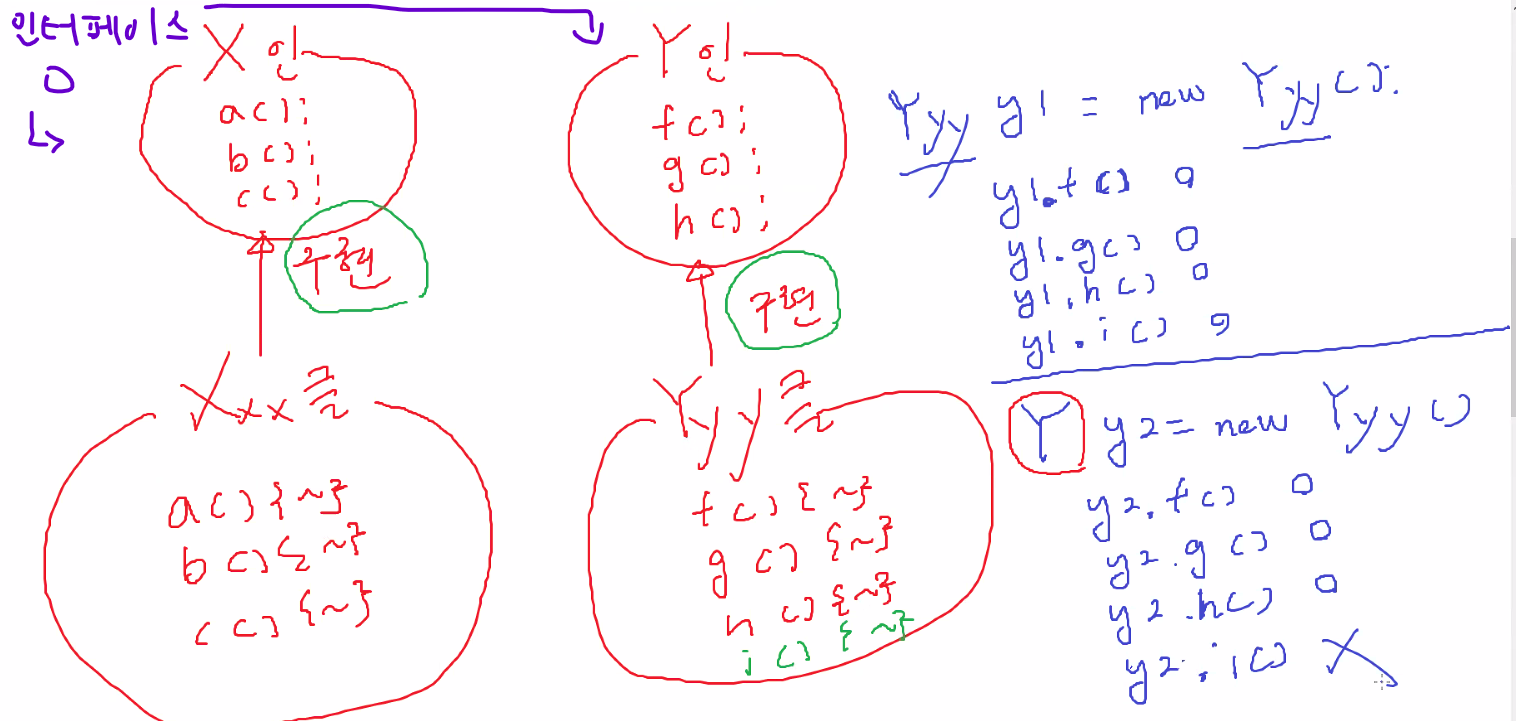 인터페이스
O
X 인
a();
b();
c();
구현
Xxx 클
a(){~}
b(){~}
c(){~}
Y 인
f();
g();
h();
구현
Yyy 클
f(){~}
g(){~}
h(){~}
i(){~}
Yyy y1 = new Yyy();
y1.f() O
y1.g() O
y1.h() O
y1.i() O
Y y2 = new Yyy()
y2.f() O
y2.g() O
y2.h() O
y2.i() X